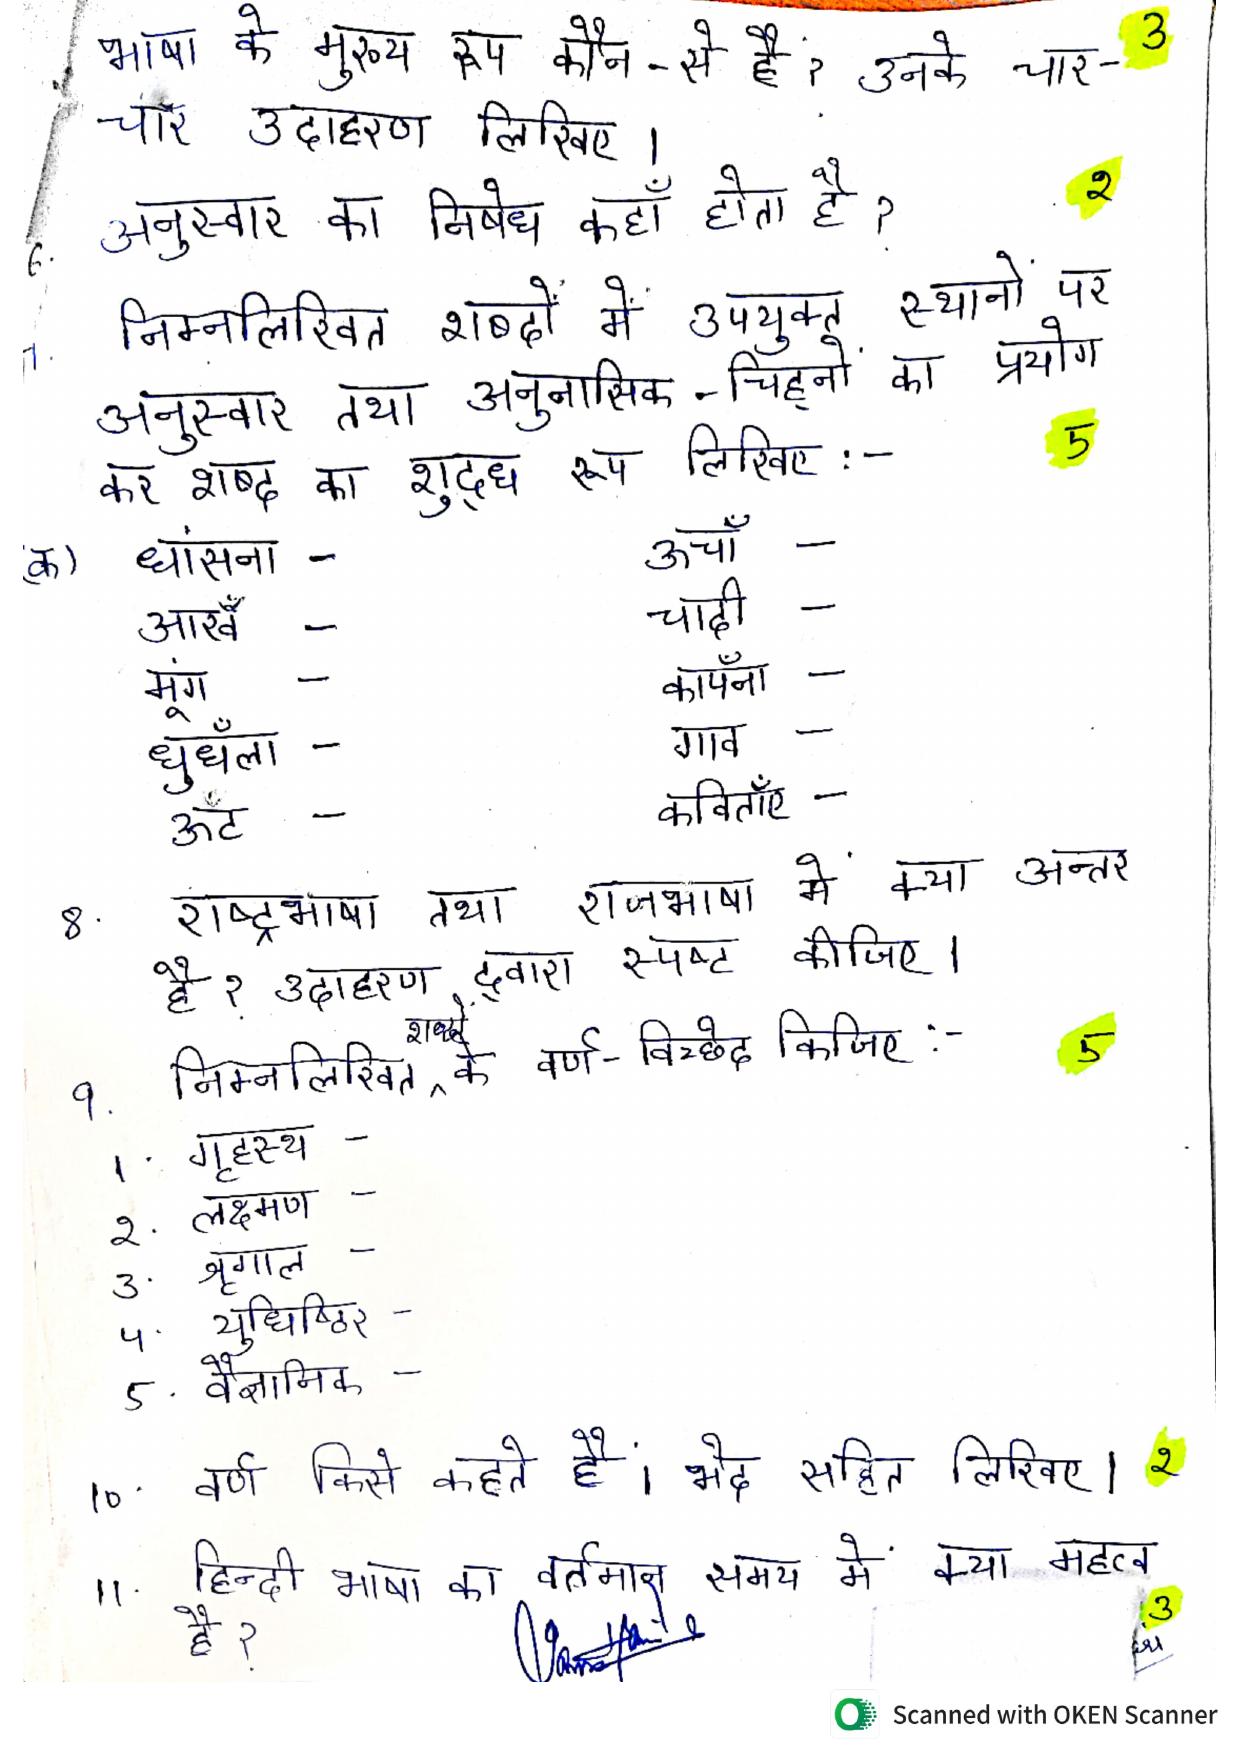 भाषा के मुख्य रूप कौन-से हैं? उनके चार- 3
चार उदाहरण लिखिए।
6. अनुस्वार का निषेध कहाँ होता है? २
7. निम्नलिखित शब्दों में उपयुक्त स्थानों पर
अनुस्वार तथा अनुनासिक-चिह्नों का प्रयोग
कर शब्द का शुद्ध रूप लिखिए :- 5
(क) धांसना - ऊचाँ -
आखेँ - चादी -
मूंग - कापँना -
धुधँला - गाव -
ऊँट - कविताँए -
8. राष्ट्रभाषा तथा राजभाषा में क्या अन्तर
है? उदाहरण द्वारा स्पष्ट कीजिए।
9. निम्नलिखित शब्दों के वर्ण-विच्छेद किजिए :- 5
1. गृहस्थ -
२. लक्ष्मण -
3. श्रृगाल -
4. युधिष्ठिर -
5. वैज्ञानिक -
10. वर्ण किसे कहते हैं। भेद सहित लिखिए। २
11. हिन्दी भाषा का वर्तमान समय में क्या महत्व
है? 3
Scanned with OKEN Scanner